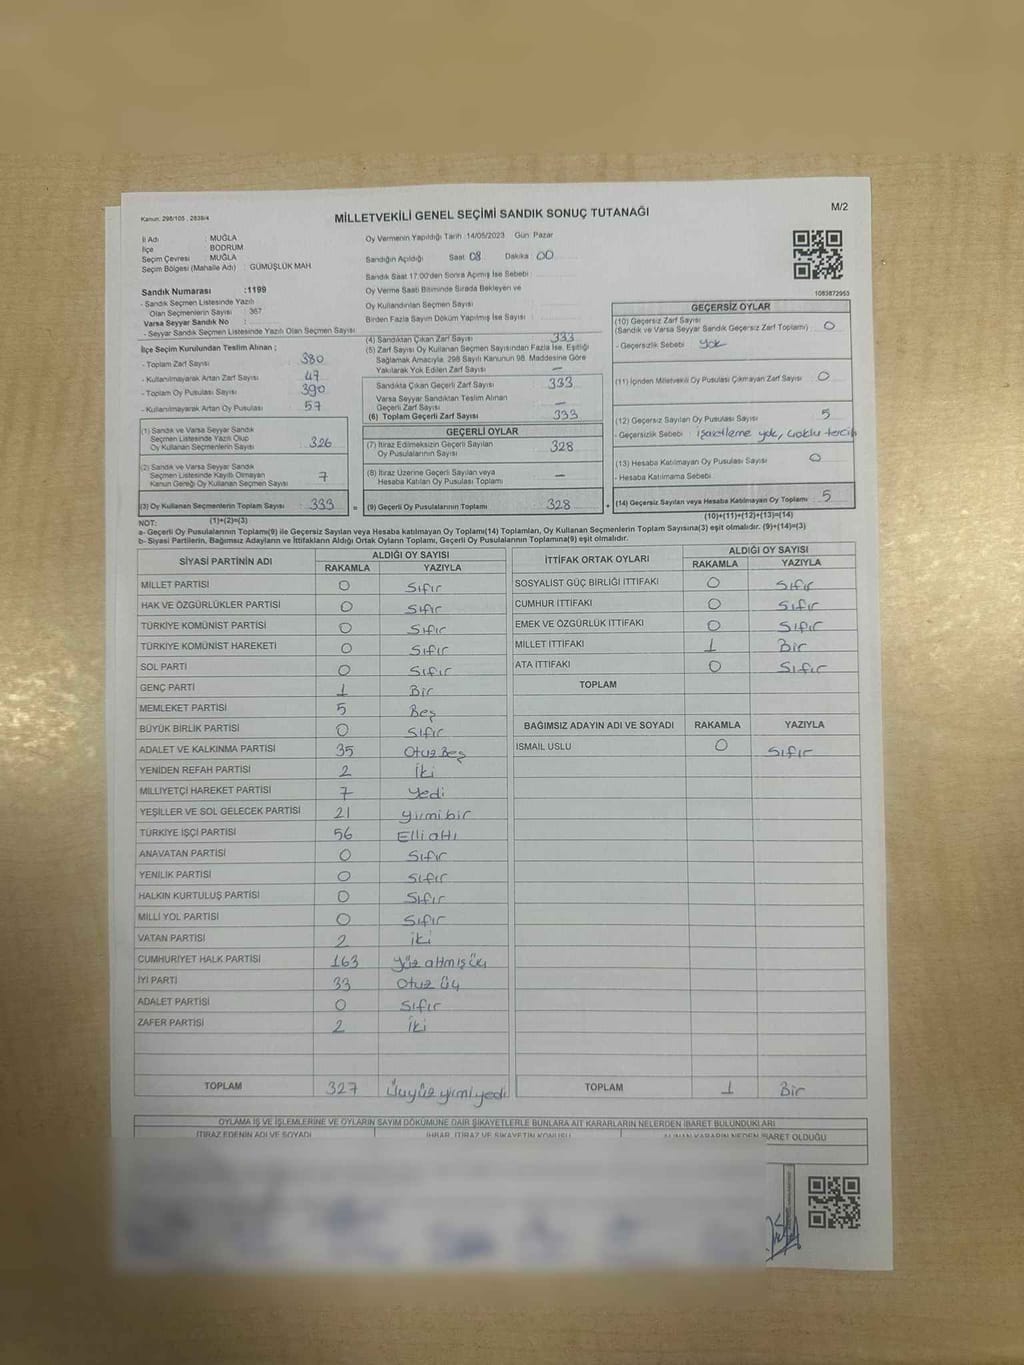 Kanun: 298/105 , 2839/4
MİLLETVEKİLİ GENEL SEÇİMİ SANDIK SONUÇ TUTANAĞI
M/2
İl Adı : MUĞLA
İlçe : BODRUM
Seçim Çevresi : MUĞLA
Seçim Bölgesi (Mahalle Adı) : GÜMÜŞLÜK MAH
Sandık Numarası :1199
- Sandık Seçmen Listesinde Yazılı
Olan Seçmenlerin Sayısı : 367
Varsa Seyyar Sandık No :
- Seyyar Sandık Seçmen Listesinde Yazılı Olan Seçmen Sayısı :
Oy Vermenin Yapıldığı Tarih 14/05/2023 Gün Pazar
Sandığın Açıldığı Saat 08 Dakika 00
Sandık Saat 17:00'den Sonra Açılmış İse Sebebi :
Oy Verme Saati Bitiminde Sırada Bekleyen ve
Oy Kullandırılan Seçmen Sayısı :
Birden Fazla Sayım Döküm Yapılmış İse Sayısı :
1083872953
İlçe Seçim Kurulundan Teslim Alınan ;
- Toplam Zarf Sayısı 380
- Kullanılmayarak Artan Zarf Sayısı 47
- Toplam Oy Pusulası Sayısı 390
- Kullanılmayarak Artan Oy Pusulası 57
(1) Sandık ve Varsa Seyyar Sandık
Seçmen Listesinde Yazılı Olup
Oy Kullanan Seçmenlerin Sayısı 326
(2) Sandık ve Varsa Seyyar Sandık
Seçmen Listesinde Kayıtlı Olmayan
Kanun Gereği Oy Kullanan Seçmen Sayısı 7
(3) Oy Kullanan Seçmenlerin Toplam Sayısı 333 =
(1)+(2)=(3)
(4) Sandıktan Çıkan Zarf Sayısı 333
(5) Zarf Sayısı Oy Kullanan Seçmen Sayısından Fazla İse, Eşitliği
Sağlamak Amacıyla, 298 Sayılı Kanunun 98. Maddesine Göre
Yakılarak Yok Edilen Zarf Sayısı —
Sandıkta Çıkan Geçerli Zarf Sayısı 333
Varsa Seyyar Sandıktan Teslim Alınan
Geçerli Zarf Sayısı —
(6) Toplam Geçerli Zarf Sayısı 333
GEÇERLİ OYLAR
(7) İtiraz Edilmeksizin Geçerli Sayılan
Oy Pusulasının Sayısı 328
(8) İtiraz Üzerine Geçerli Sayılan veya
Hesaba Katılan Oy Pusulası Toplamı —
(9) Geçerli Oy Pusulalarının Toplamı 328 +
GEÇERSİZ OYLAR
(10) Geçersiz Zarf Sayısı
(Sandık ve Varsa Seyyar Sandık Geçersiz Zarf Toplamı) 0
- Geçersizlik Sebebi : Yok
(11) İçinden Milletvekili Oy Pusulası Çıkmayan Zarf Sayısı 0
(12) Geçersiz Sayılan Oy Pusulası Sayısı 5
- Geçersizlik Sebebi : işaretleme yok, çoklu tercih
(13) Hesaba Katılmayan Oy Pusulası Sayısı 0
- Hesaba Katılmama Sebebi
(14) Geçersiz Sayılan veya Hesaba Katılmayan Oy Pusulası Toplamı : 5
(10)+(11)+(12)+(13)=(14)
NOT:
a- Geçerli Oy Pusulalarının Toplamı(9) ile Geçersiz Sayılan veya Hesaba katılmayan Oy Toplamı(14) Toplamları, Oy Kullanan Seçmenlerin Toplam Sayısına(3) eşit olmalıdır. (9)+(14)=(3)
b- Siyasi Partilerin, Bağımsız Adayların ve İttifakların Aldığı Ortak Oyların Toplamı, Geçerli Oy Pusulalarının Toplamına(9) eşit olmalıdır.
SİYASİ PARTİNİN ADI ALDIĞI OY SAYISI
RAKAMLA YAZIYLA
MİLLET PARTİSİ 0 Sıfır
HAK VE ÖZGÜRLÜKLER PARTİSİ 0 Sıfır
TÜRKİYE KOMÜNİST PARTİSİ 0 Sıfır
TÜRKİYE KOMÜNİST HAREKETİ 0 Sıfır
SOL PARTİ 0 Sıfır
GENÇ PARTİ 1 Bir
MEMLEKET PARTİSİ 5 Beş
BÜYÜK BİRLİK PARTİSİ 0 Sıfır
ADALET VE KALKINMA PARTİSİ 35 Otuz Beş
YENİDEN REFAH PARTİSİ 2 İki
MİLLİYETÇİ HAREKET PARTİSİ 7 Yedi
YEŞİLLER VE SOL GELECEK PARTİSİ 21 yirmi bir
TÜRKİYE İŞÇİ PARTİSİ 56 Elli altı
ANAVATAN PARTİSİ 0 Sıfır
YENİLİK PARTİSİ 0 Sıfır
HALKIN KURTULUŞ PARTİSİ 0 Sıfır
MİLLİ YOL PARTİSİ 0 Sıfır
VATAN PARTİSİ 2 iki
CUMHURİYET HALK PARTİSİ 163 Yüz altmış üç
İYİ PARTİ 33 Otuz üç
ADALET PARTİSİ 0 Sıfır
ZAFER PARTİSİ 2 İki
TOPLAM 327 Üçyüz yirmi yedi
İTTİFAK ORTAK OYLARI ALDIĞI OY SAYISI
RAKAMLA YAZIYLA
SOSYALİST GÜÇ BİRLİĞİ İTTİFAKI 0 Sıfır
CUMHUR İTTİFAKI 0 Sıfır
EMEK VE ÖZGÜRLÜK İTTİFAKI 0 Sıfır
MİLLET İTTİFAKI 1 Bir
ATA İTTİFAKI 0 Sıfır
TOPLAM
BAĞIMSIZ ADAYIN ADI VE SOYADI RAKAMLA YAZIYLA
İSMAİL USLU 0 Sıfır
TOPLAM 1 Bir
OYLAMA İŞ VE İŞLEMLERİNE VE OYLARIN SAYIM DÖKÜMÜNE DAİR ŞİKAYETLERLE BUNLARA AİT KARARLARIN NELERDEN İBARET BULUNDUKLARI
İTİRAZ EDENİN ADI VE SOYADI İHBAR, İTİRAZ VE ŞİKAYETİN KONUSU ALINAN KARARIN NEDEN İBARET OLDUĞU